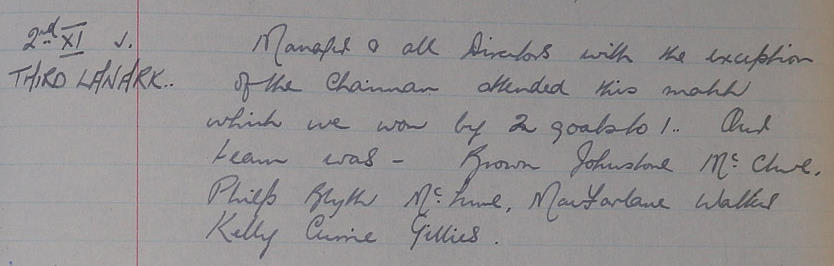 2nd XI v.
THIRD LANARK..
Manager & all Directors with the exception
of the Chairman attended this match
which we won by 2 goals to 1.. Our
team was - Brown Johnstone Mc Clure,
Philp Blyth Mc Lune, MacFarlane Walker
Kelly Currie Gillies.